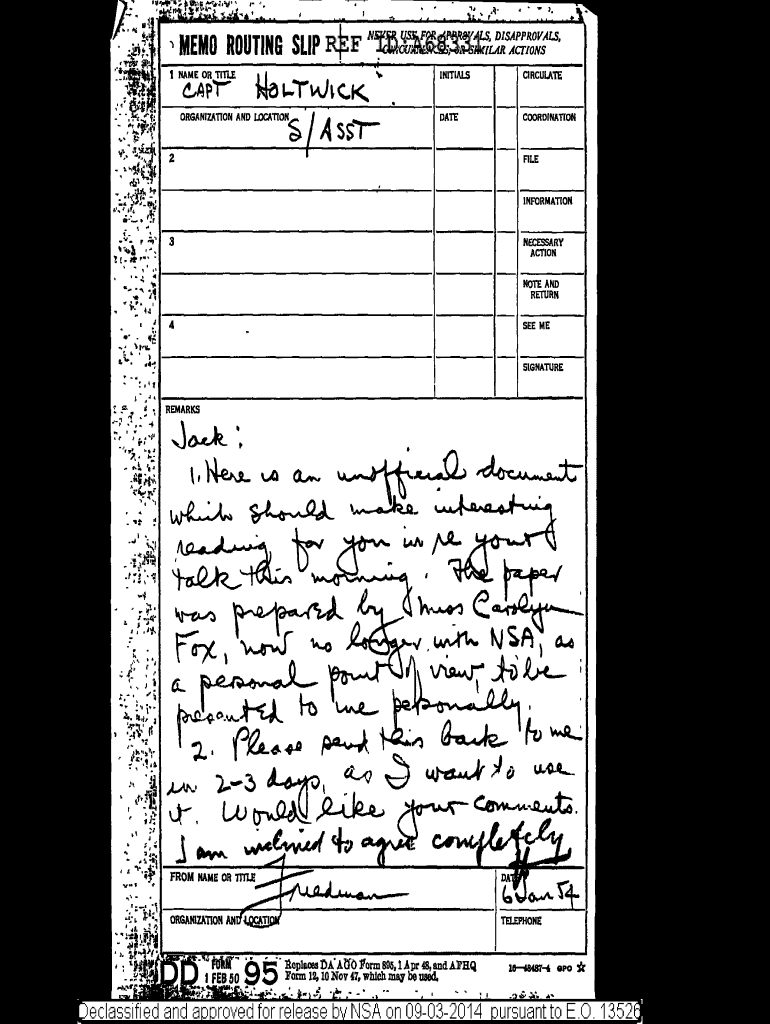 MEMO ROUTING SLIP
REF ID:A68331
NEVER USE FOR APPROVALS, DISAPPROVALS,
CONCURRENCES, OR SIMILAR ACTIONS
1 NAME OR TITLE
INITIALS
CIRCULATE
CAPT HOLTWICK
ORGANIZATION AND LOCATION
DATE
COORDINATION
S/ASST
2
FILE
INFORMATION
3
NECESSARY
ACTION
NOTE AND
RETURN
4
SEE ME
SIGNATURE
REMARKS
Jack:
1. Here is an unofficial document
which should make interesting
reading for you in re your
talk this morning. The paper
was prepared by Miss Carolyn
Fox, now no longer with NSA, as
a personal point of view, to be
presented to me personally.
2. Please send this back to me
in 2-3 days, as I want to use
it. Would like your comments.
I am inclined to agree completely
FROM NAME OR TITLE
DATE
Friedman
6 Jan 54
ORGANIZATION AND LOCATION
TELEPHONE
DD FORM 1 FEB 50 95
Replaces DA AGO Form 895, 1 Apr 48, and AFHQ
Form 12, 10 Nov 47, which may be used.
16—48487-4 GPO
Declassified and approved for release by NSA on 09-03-2014 pursuant to E.O. 13526